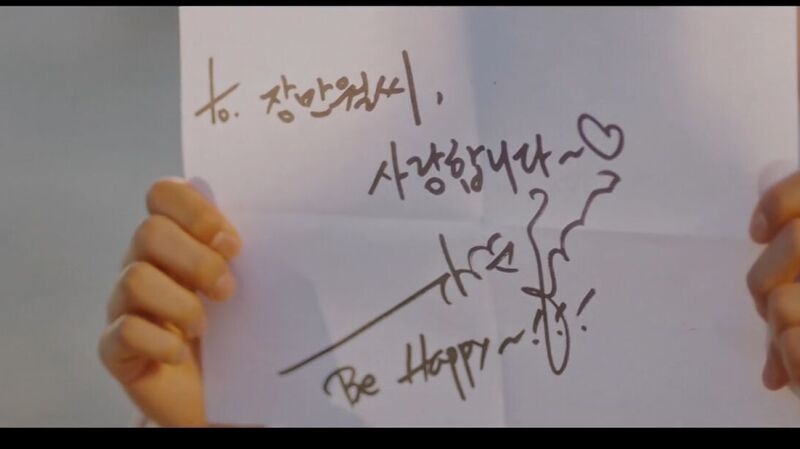 to. 장만월씨,
사랑합니다~♡
Be Happy~!!!